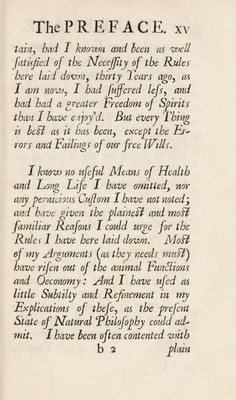 The PREFACE. xv
tain, had I known and been as well
ſatisfied of the Neceſſity of the Rules
here laid down, thirty Years ago, as
I am now, I had ſuffered leſs, and
had had a greater Freedom of Spirits
than I have enjoy'd. But every Thing
is beſt as it has been, except the Er-
rors and Failings of our free Wills.
I know no uſeful Means of Health
and Long Life I have omitted, nor
any pernicious Cuſtom I have not noted;
and have given the plaineſt and moſt
familiar Reaſons I could urge for the
Rules I have here laid down. Moſt
of my Arguments (as they needs muſt)
have riſen out of the animal Functions
and Oeconomy: And I have uſed as
little Subtilty and Refinement in my
Explications of theſe, as the preſent
State of Natural Philoſophy could ad-
mit. I have been often contented with
b 2 plain